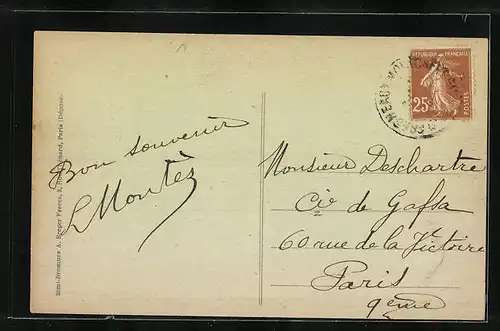 Bon souvenir
L Montès
RÉPUBLIQUE FRANÇAISE
25c
POSTES
Monsieur Deschartre
Cie de Gafsa
60 rue de la Victoire
Paris
9ème
Simi-Bromure A. Breger Frères, 9, Rue Paris (Déposé)